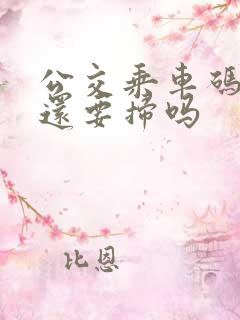 公交乘车码
还要扫吗
比恩